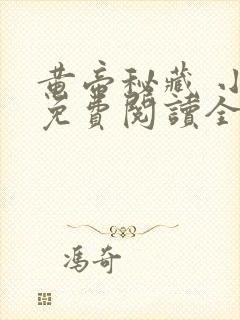 黃帝秘藏 小
免費閱讀全
馮奇